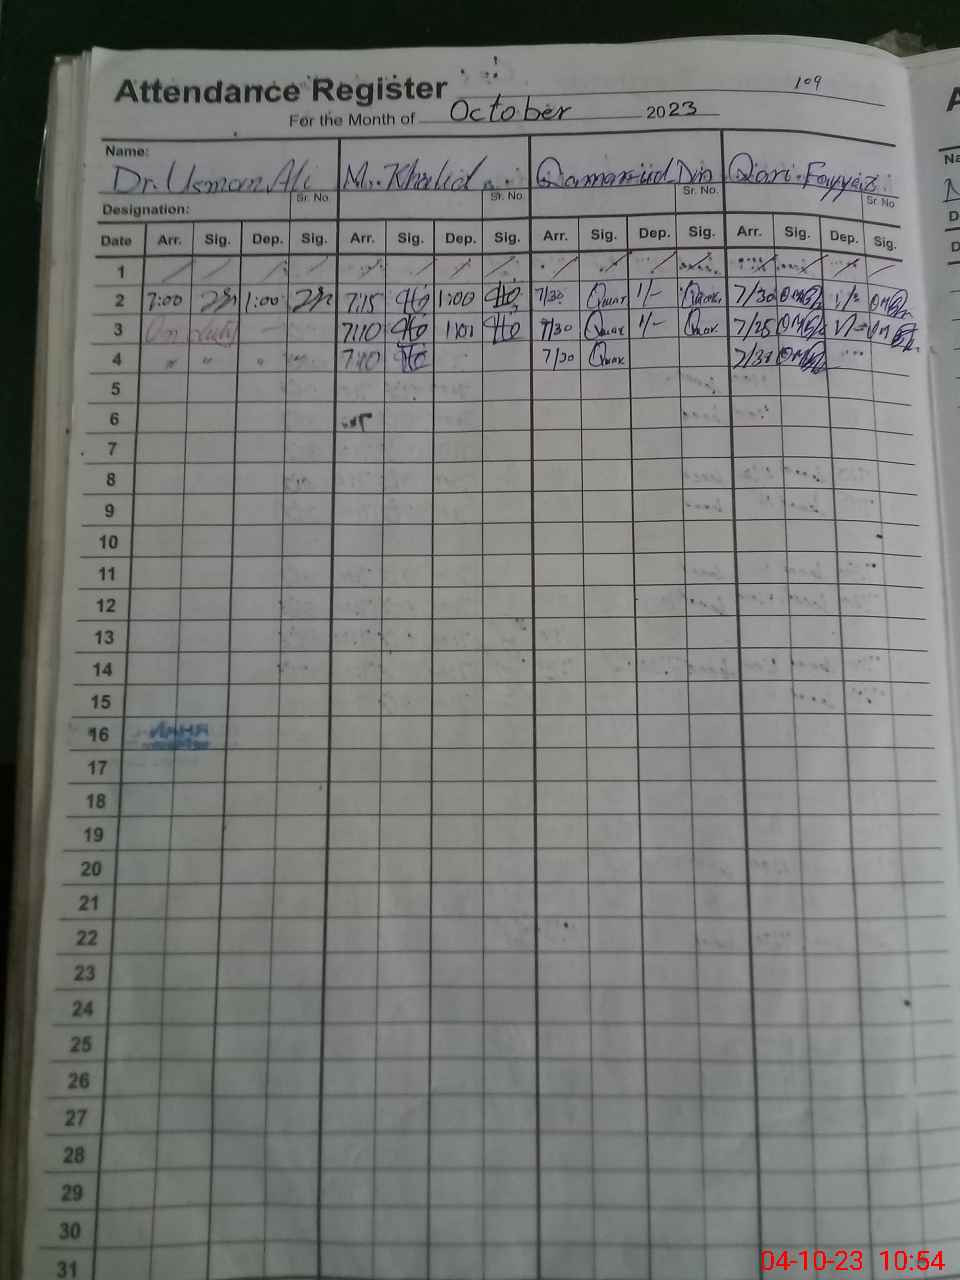 109
Attendance Register
For the Month of October 2023
Name:
Dr. Usman Ali M. Khalid Qamar-ud-Din Qari Fayyaz
Designation: Sr. No. Sr. No. Sr. No. Sr. No.
Date Arr. Sig. Dep. Sig. Arr. Sig. Dep. Sig. Arr. Sig. Dep. Sig. Arr. Sig. Dep. Sig.
1
2 7:00 1:00 7:15 1:00 7/30 1/- 7/30
3 On duty 7:10 1:01 7/30 1/- 7/25
4 " " " 7:10 7/30 7/30
5
6
7
8
9
10
11
12
13
14
15
16
17
18
19
20
21
22
23
24
25
26
27
28
29
30
31
04-10-23 10:54